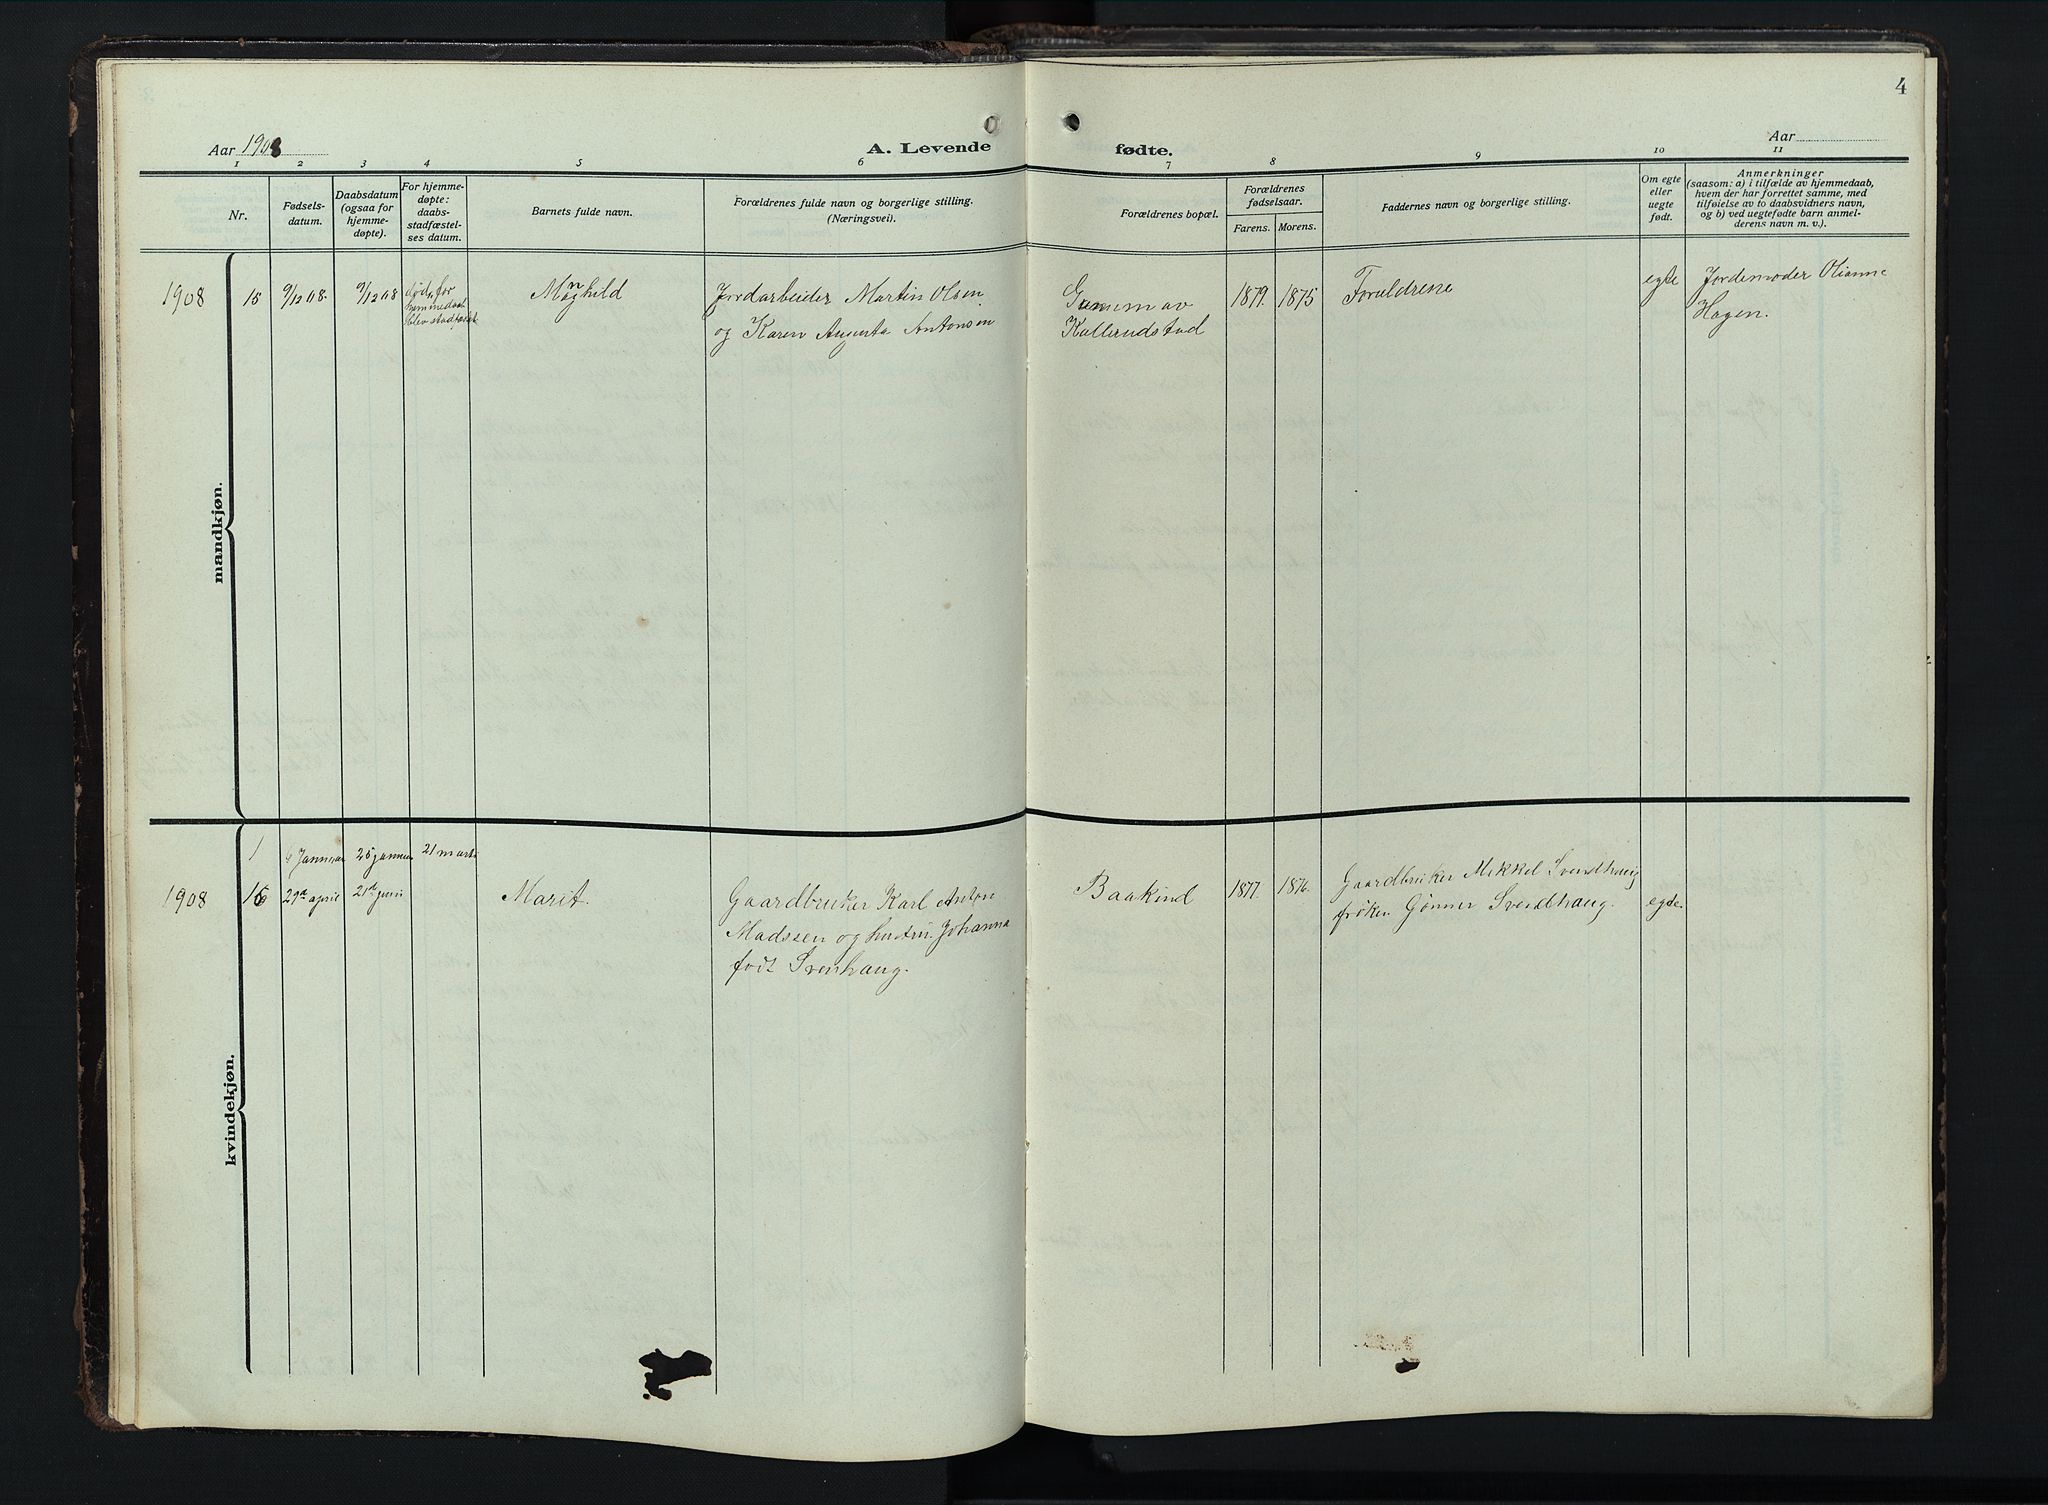 4
Aar 1908
A. Levende
fødte.
Aar
1 2 3 4 5 6 7 8 9 10 11
Nr.
Fødsels-
datum.
Daabsdatum
(ogsaa for
hjemme-
døpte).
For hjemme-
døpte:
daabs-
stadfæstel-
ses datum.
Barnets fulde navn.
Forældrenes fulde navn og borgerlige stilling.
(Næringsvei).
Forældrenes bopæl.
Forældrenes
fødselsaar.
Farens. Morens.
Faddernes navn og borgerlige stilling.
Om egte
eller
uegte
født.
Anmerkninger
(saasom: a) i tilfælde av hjemmedaab,
hvem der har forrettet samme, med
tilføielse av to daabsvidners navn,
og b) ved uegtefødte barn anmel-
derens navn m. v.).
mandkjøn.
1908 15 9/12 08. 9/12 08
død, før
hjemmedaab
blev stadfæstet
Magnhild
Jordarbeider Martin Olsen
og Karen Augusta Antonsen
Kallerudstad
1879. 1875
Foreldrene
egte
Jordemoder Olianne
Hagen.
kvindekjøn.
1 4 Januar 25 januar 21 marts
1908 16 29d april 21d juni
Marit.
Gaardbruker Karl Anton
Madssen og hustru Johanna
født Svenhaug.
Baakind
1877. 1876.
Gaardbruker Mikkel Svendhaug
frøken Gønner Svendhaug.
egte.